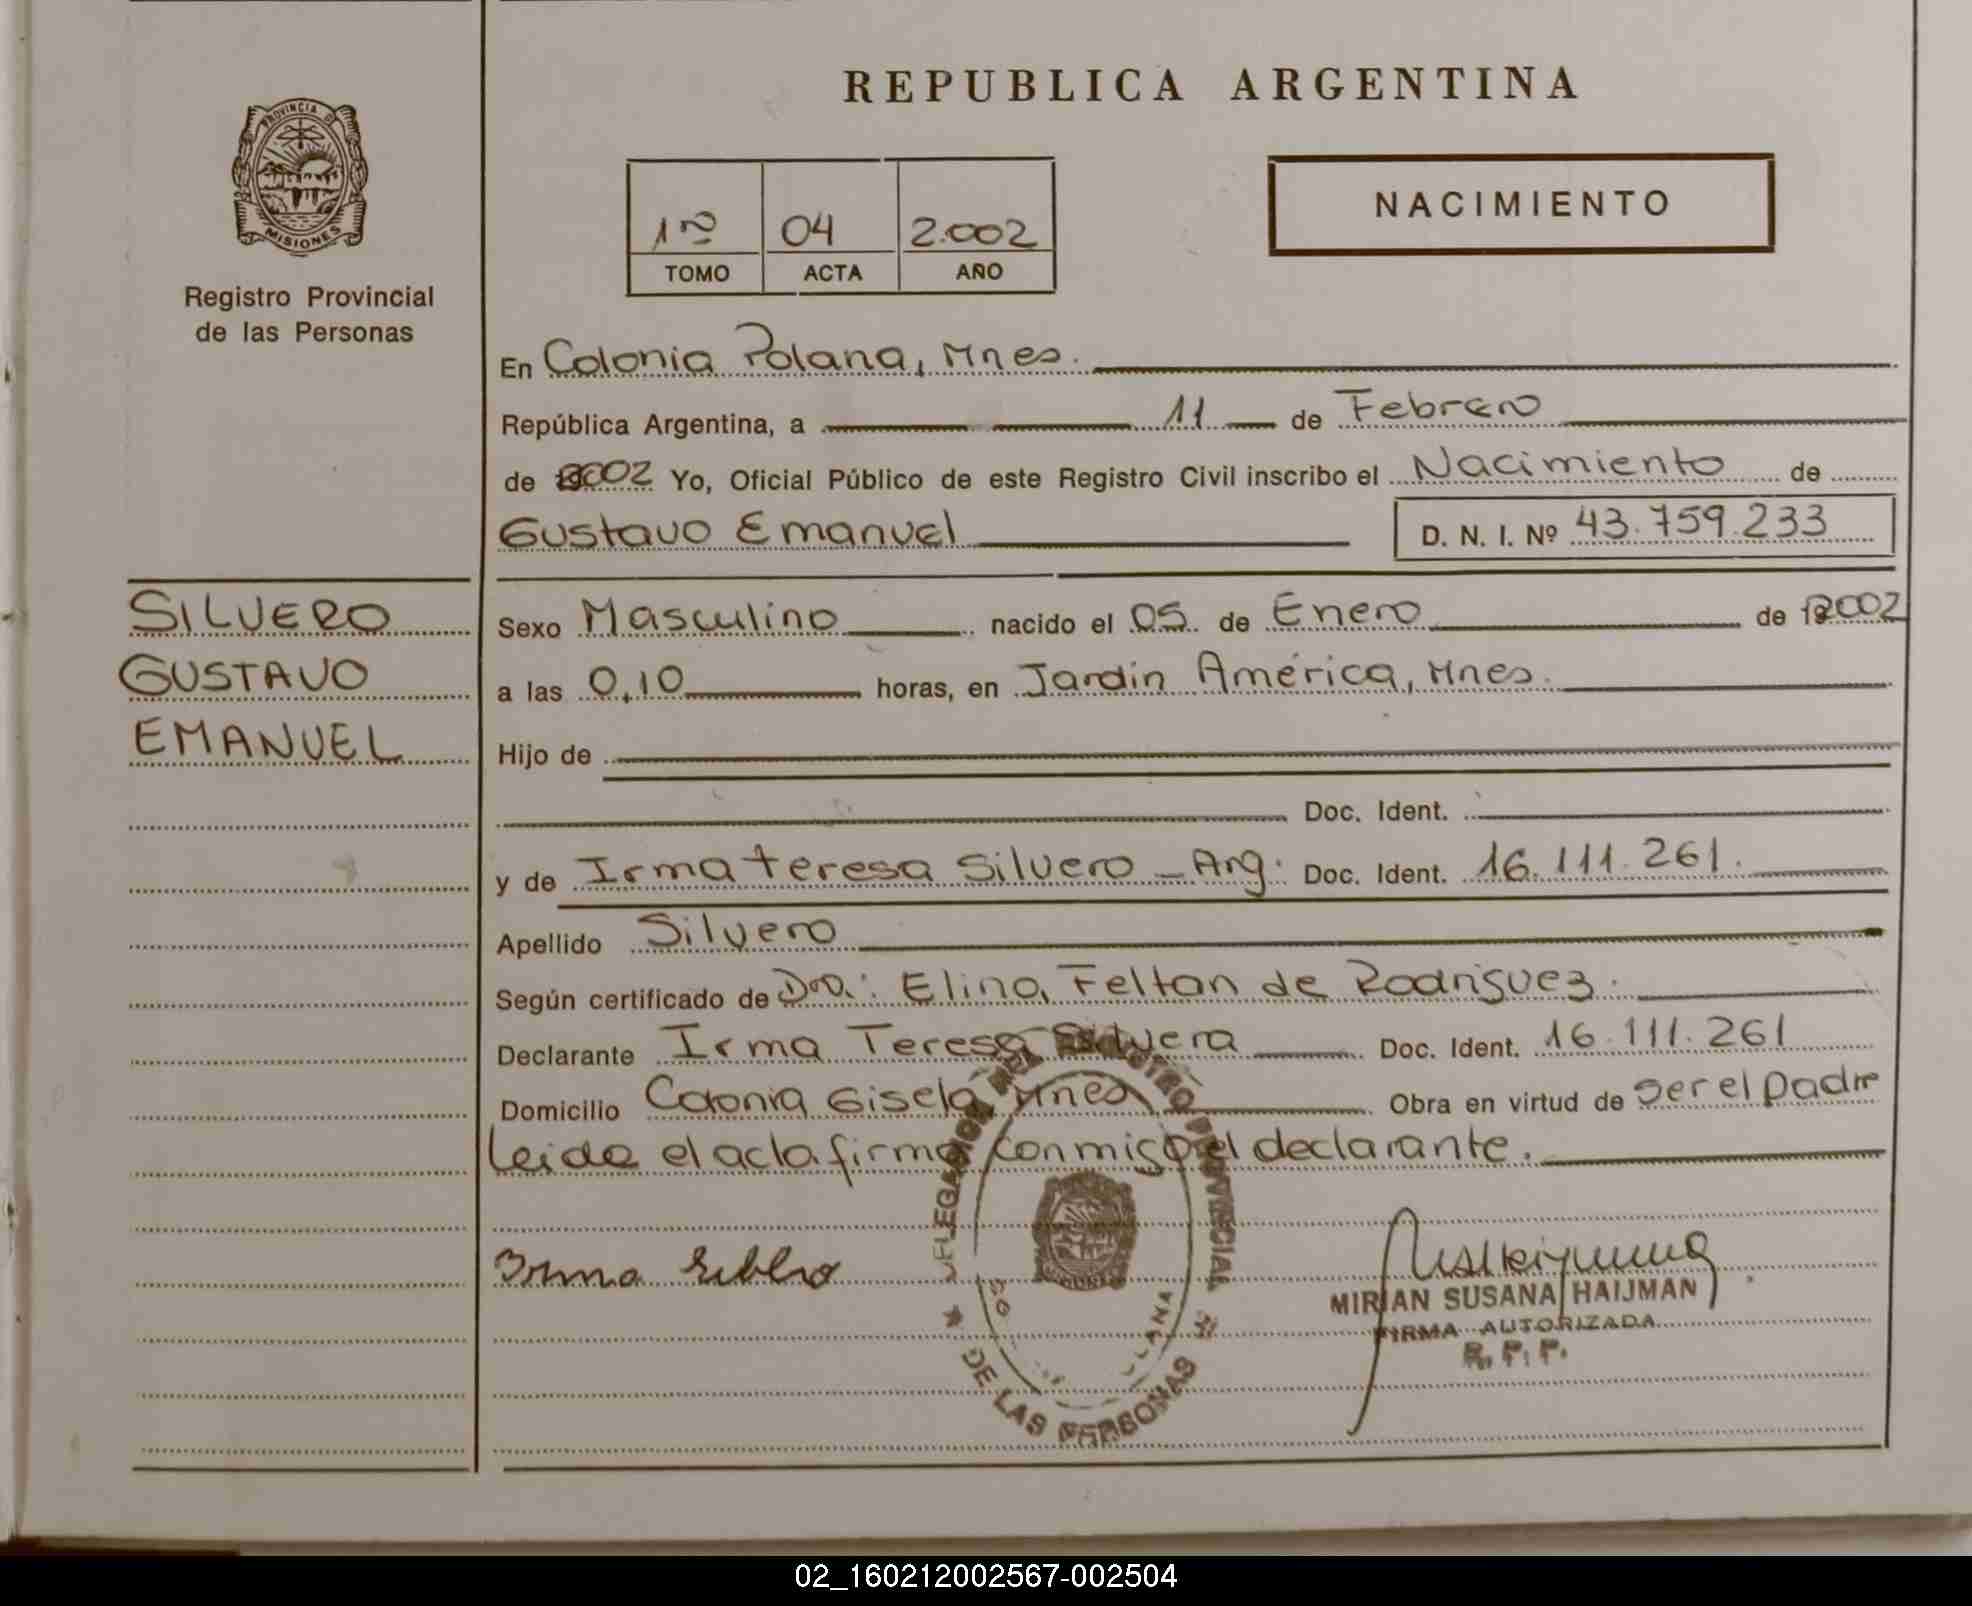 REPUBLICA ARGENTINA
PROVINCIA D
MISIONES
Registro Provincial
de las Personas
1º 04 2.002
TOMO ACTA AÑO
NACIMIENTO
En Colonia Polana, Mnes.
República Argentina, a 11 de Febrero
de 2002 Yo, Oficial Público de este Registro Civil inscribo el Nacimiento de
Gustavo Emanuel D. N. I. Nº 43.759.233
SILVERO
GUSTAVO
EMANUEL
Sexo Masculino nacido el 05 de Enero de 2002
a las 0,10 horas, en Jardín América, Mnes.
Hijo de
Doc. Ident.
y de Irma teresa Silvero - Arg. Doc. Ident. 16.111.261.
Apellido Silvero
Según certificado de Dra.: Elina Feltan de Rodriguez.
Declarante Irma Teresa Doc. Ident. 16.111.261
Domicilio Colonia Gisela, Mnes Obra en virtud de ser el padre
Leida el acta firma conmigo el declarante.
Irma
DE LAS PERSONAS
MIRIAN SUSANA HAIJMAN
FIRMA AUTORIZADA
R. P. P.
02_160212002567-002504